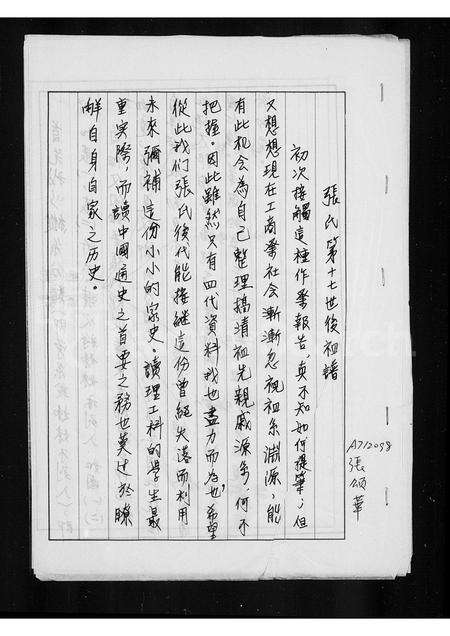 張氏第十七世後祖譜
初次接觸這種作業報告，真不知如何提筆，但
又想想現在工商業社會漸漸忽視祖系淵源，能
有此机会為自己整理搞清祖先親戚源系，何不
把握。因此雖然只有四代資料我也盡力而為也，希望
從此我们張氏後代能接繼這份曾經失落而利用
未來彌補這份小小的家史。讀理工科的學生最
重实際，而讀中國通史之首要之務也莫过於瞭
解自身自家之历史。
A712098
張頌華